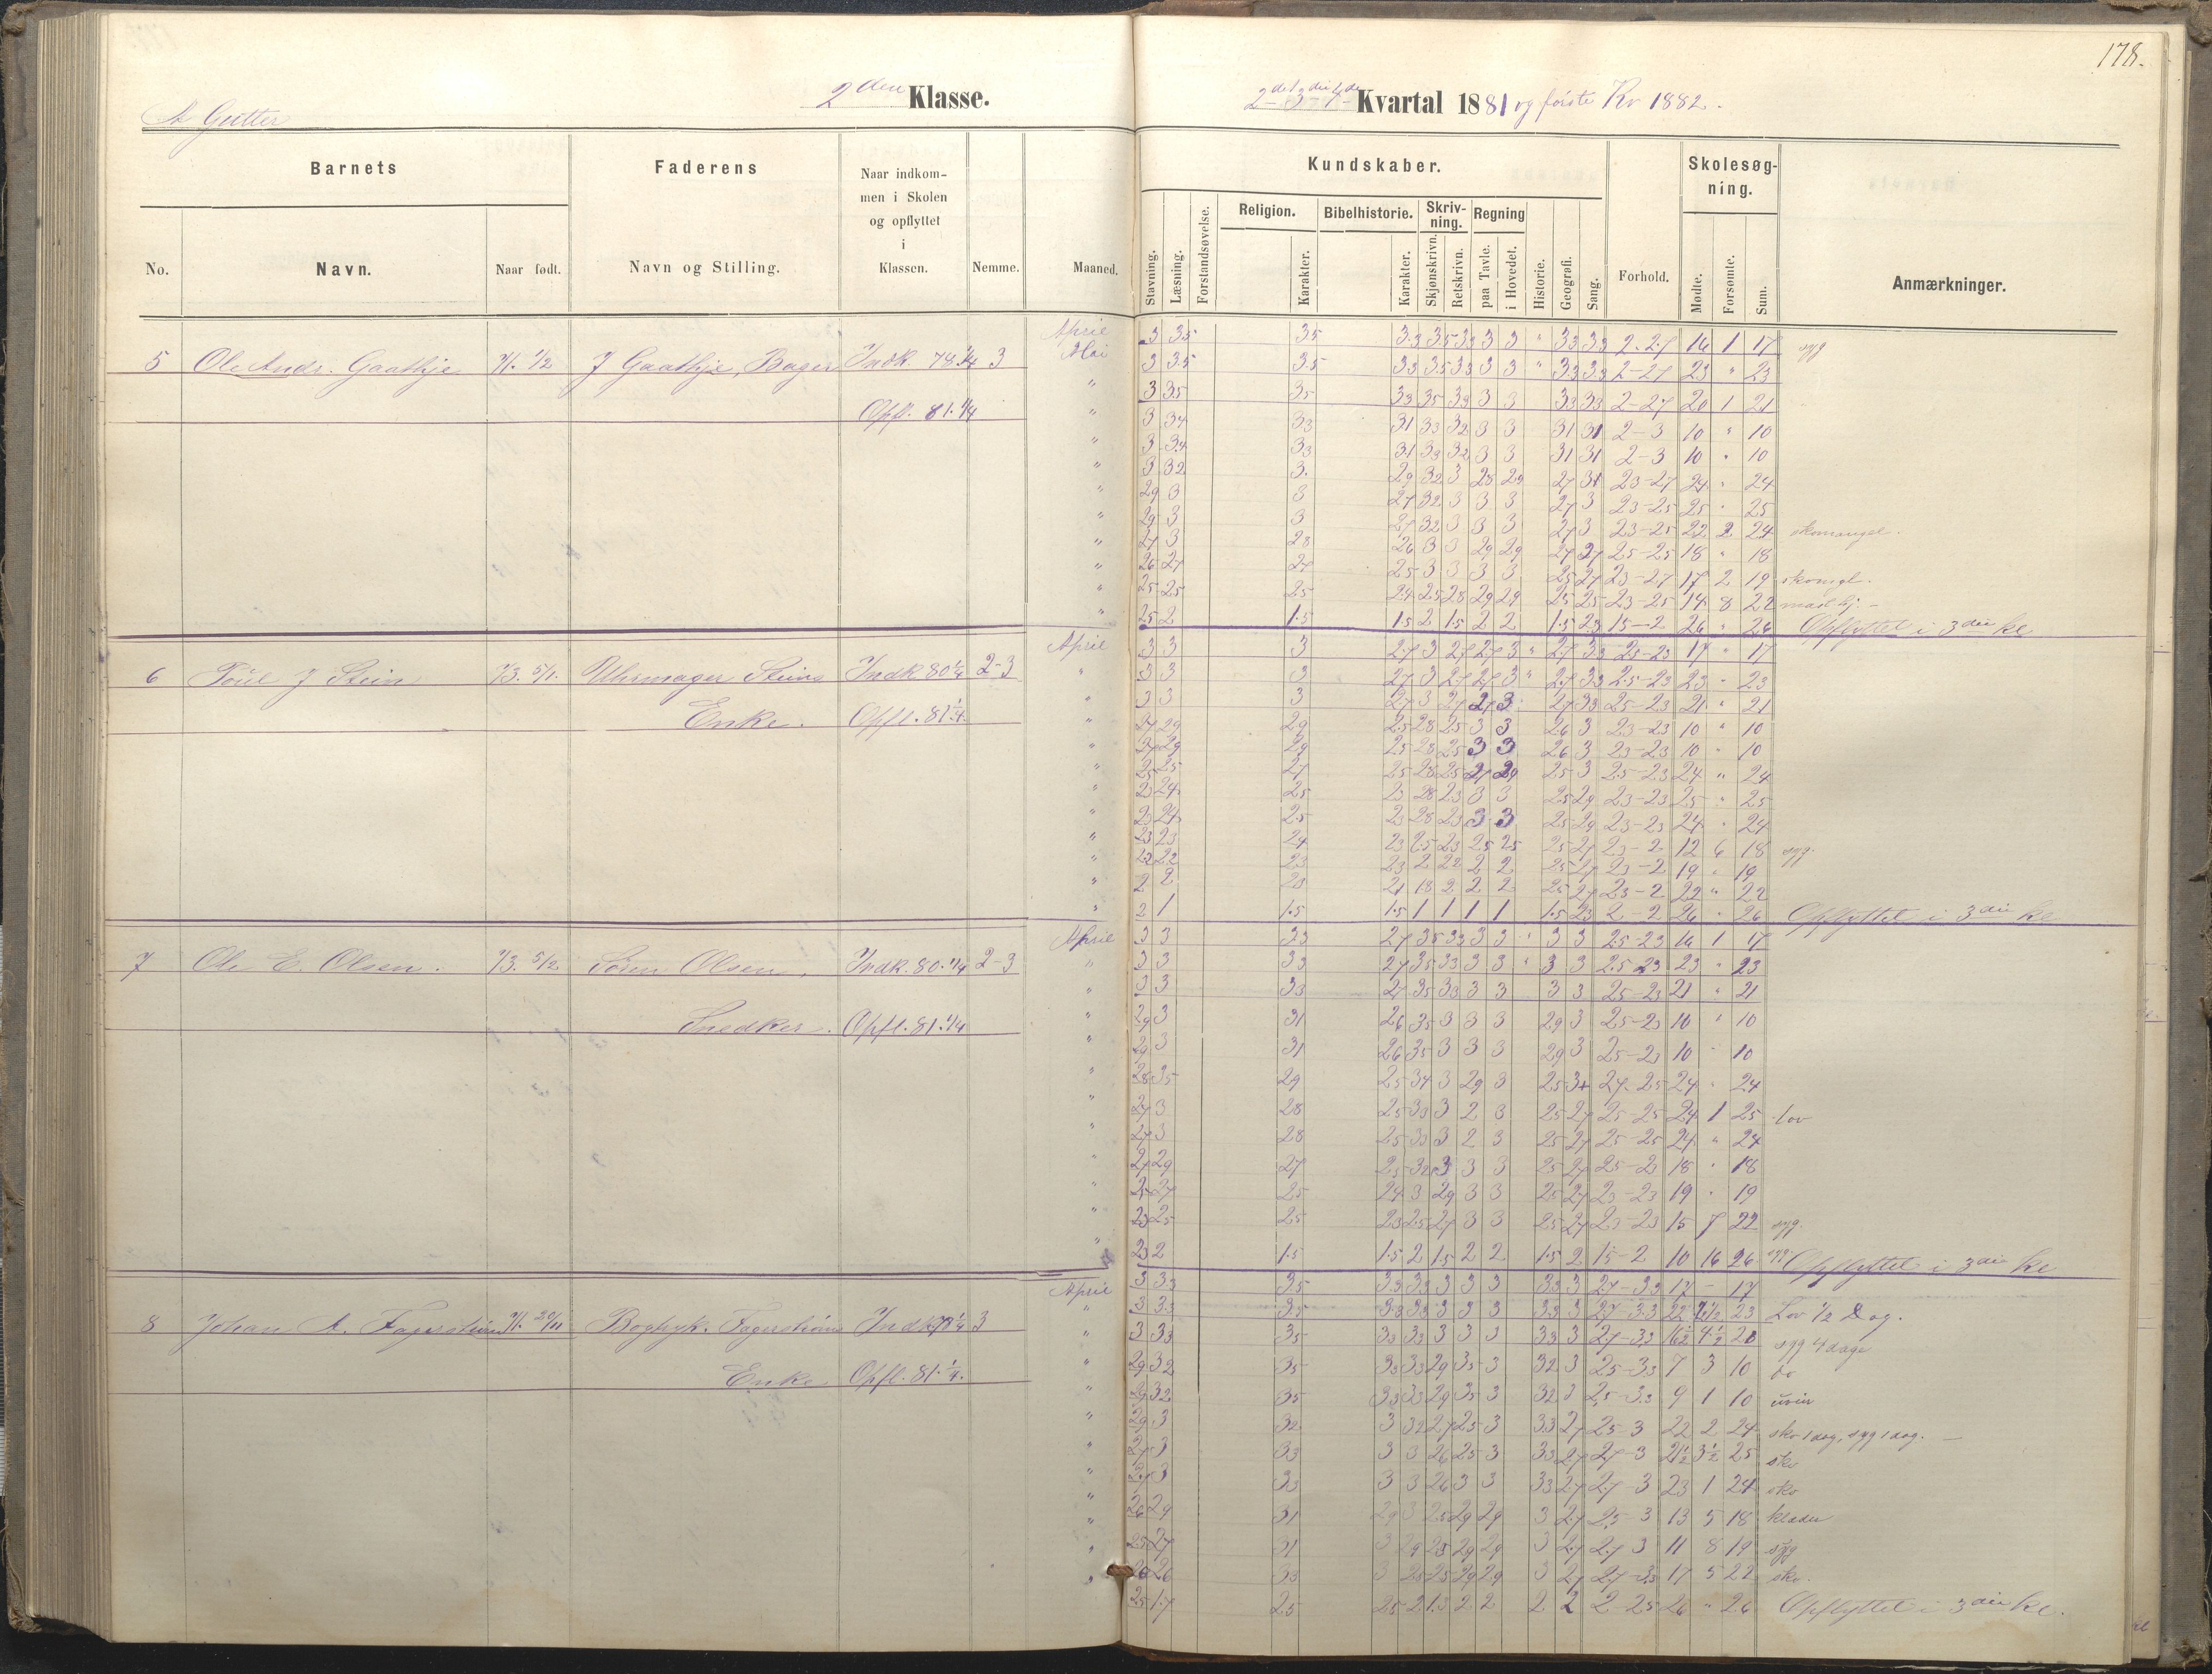 178.
A Gutter
2den Klasse.
2det 3die 4de Kvartal 1881 og første Kv 1882.
Barnets
Faderens
Naar indkommen i Skolen og opflyttet i Klassen.
Nemme.
Maaned.
No.
Navn.
Naar født.
Navn og Stilling.
Kundskaber.
Stavning.
Læsning.
Forstandsøvelse.
Religion.
Karakter.
Bibelhistorie.
Karakter.
Skrivning.
Skjønskrivn.
Retskrivn.
Regning
paa Tavle.
i Hovedet.
Historie.
Geografi.
Sang.
Forhold.
Skolesøgning.
Mødte.
Forsømte.
Sum.
Anmærkninger.
5 Ole Andr. Gaathje 71. 1/2 J Gaathje, Bager Indk. 78 1/4 3
Opfl. 81. 1/4
April 3 35 35 33 35 33 3 3 " 33 33 2-27 16 1 17 syg
Mai 3 35 35 33 35 33 3 3 " 33 33 2-27 23 " 23
" 3 35 35 33 35 33 3 3 33 33 2-27 20 1 21
" 3 34 33 31 33 32 3 3 31 31 2-3 10 " 10
" 3 34 33 31 33 32 3 3 31 31 2-3 10 " 10
" 3 32 3. 29 32 3 28 29 27 31 23-27 24 " 24
" 29 3 3 27 32 3 3 3 27 3 23-25 25 " 25
" 29 3 3 27 32 3 3 3 27 3 23-25 22 2 24 skomangel.
" 27 3 28 26 3 3 29 29 27 27 25-25 18 " 18
" 26 27 27 25 3 3 3 3 25 27 23-27 17 2 19 skomgl.
" 25 25 25 24 25 28 29 29 25 25 23-25 14 8 22
" 25 2 1.5 1.5 2 1.5 2 2 1.5 23 15-2 26 " 26 Opflyttet i 3die Kl
6 Poul J Stein 73. 5/1. Uhrmager Steins Indk 80 1/4 2-3
Enke. Opfl. 81 1/4.
April 3 3 3 27 3 27 27 3 " 27 33 25-23 17 " 17
" 3 3 3 27 3 27 27 3 " 27 33 25-23 23 " 23
" 3 3 3 27 3 27 27 3 27 33 25-23 21 " 21
" 27 29 29 25 28 25 3 3 26 3 23-23 10 " 10
" 29 29 25 28 25 3 3 26 3 23-23 10 " 10
" 25 25 27 25 28 25 27 29 25 3 25-23 24 " 24
" 23 24 25 23 28 23 3 3 25 29 23-23 25 " 25
" 23 24 25 23 28 23 3 3 25 29 23-23 24 " 24
" 23 23 24 23 25 23 25 25 25 27 23-2 12 6 18 syg.
" 22 22 23 23 2 22 2 2 25 27 23-2 19 " 19
" 2 2 23 21 18 2 2 2 25 27 23-2 22 " 22
" 2 1 1.5 1.5 1 1 1 1 1.5 23 2-2 26 " 26 Opflyttet i 3die Kl
7 Ole E. Olsen. 73. 5/2 Søren Olsen, Indk. 80. 1/4 2-3
Snedker. Opfl. 81. 1/4
April 3 3 33 27 35 33 3 3 " 3 3 25-23 16 1 17
" 3 3 33 27 35 33 3 3 " 3 3 25 23 23 " 23
" 3 3 33 27 35 33 3 3 3 3 25-23 21 " 21
" 29 3 31 26 35 3 3 3 29 3 25-23 10 " 10
" 29 3 31 26 35 3 3 3 29 3 25-23 10 " 10
" 28 35 29 25 34 3 29 3 25 3+ 27-25 24 " 24
" 27 3 28 25 33 3 2 3 25 27 25-25 24 1 25 lov
" 27 3 28 25 33 3 2 3 25 27 25-25 24 " 24
" 27 29 27 25 32 3 3 3 25 27 25-23 18 " 18
" 25 27 25 24 3 29 3 3 25 27 23-23 19 " 19
" 23 25 25 23 25 27 3 3 25 27 23-23 15 7 22 syg.
" 23 2 1.5 1.5 2 1.5 2 2 1.5 2 15-2 10 16 26 syg. Opflyttet i 3die Kl
8 Johan A. Fagerstrøm 71. 20/11 Bogtryk. Fagerstrøms Indk 78 1/4 3
Enke Opfl. 81. 1/4.
April 3 33 35 33 33 3 3 3 33 3 27-33 17 - 17
" 3 33 35 33 33 3 3 3 33 3 27-33 22 1/2 1/2 23 Lov 1/2 Dag.
" 3 33 35 33 33 3 3 3 33 3 27-33 16 1/2 4 1/2 21 syg 4 dage
" 29 32 35 33 33 29 35 3 32 3 25-33 7 3 10 do
" 29 32 35 33 33 29 35 3 32 3 25-33 9 1 10
" 29 3 32 3 32 27 25 3 33 27 25-3 22 2 24 sko 1 dag, syg 1 dag.
" 27 3 33 3 3 26 25 3 33 27 27-3 21 1/2 3 1/2 25 sko
" 27 3 33 3 3 26 3 3 33 27 27-3 23 1 24 sko
" 26 29 31 29 3 25 29 29 3 27 25-3 13 5 18 klæder
" 25 27 31 3 29 25 29 29 3 27 27 3 11 8 19 syg
" 26 26 33 3 25 25 29 29 3 27 27-33 17 5 22 sko.
" 25 1.7 25 25 2 1.3 2 2 2 2 2 25 26 " 26 Opflyttet i 3die Kl.